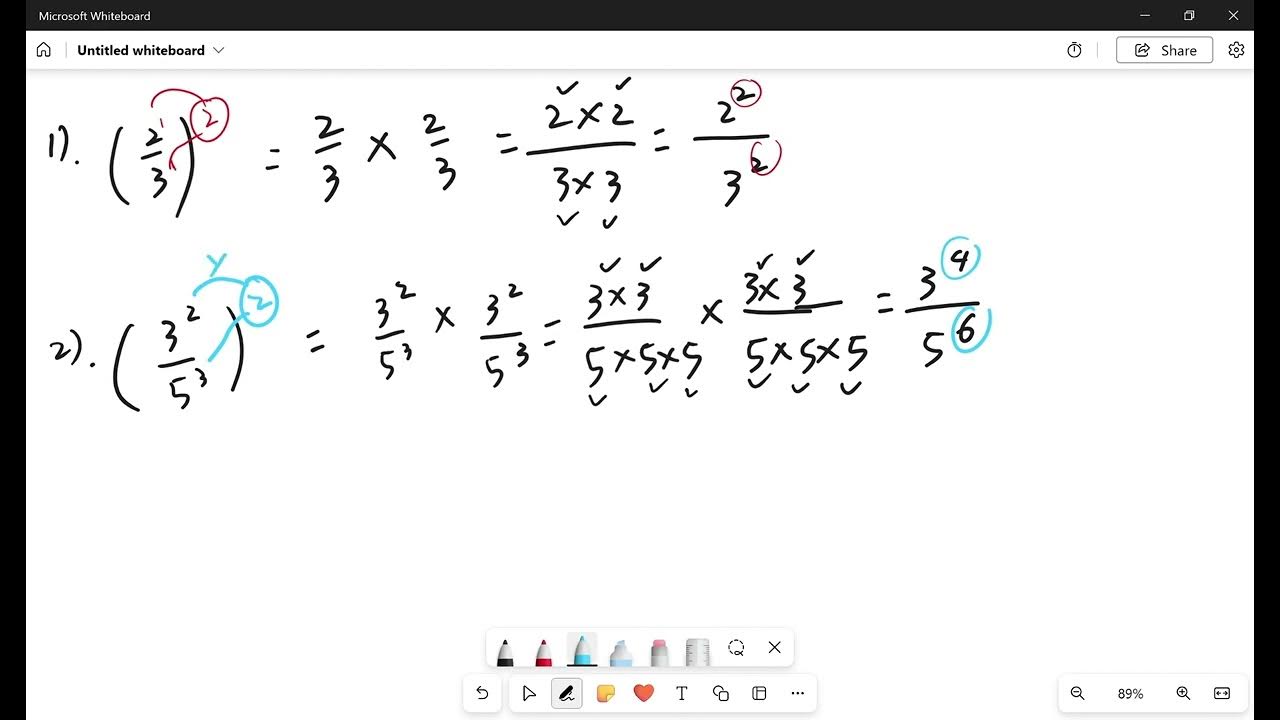 Microsoft Whiteboard
Untitled whiteboard
Share
1). (2¹/3)² = 2/3 × 2/3 = 2×2/3×3 = 2²/3²
2). (3²/5³)² = 3²/5³ × 3²/5³ = 3×3/5×5×5 × 3×3/5×5×5 = 3⁴/5⁶
T
89%